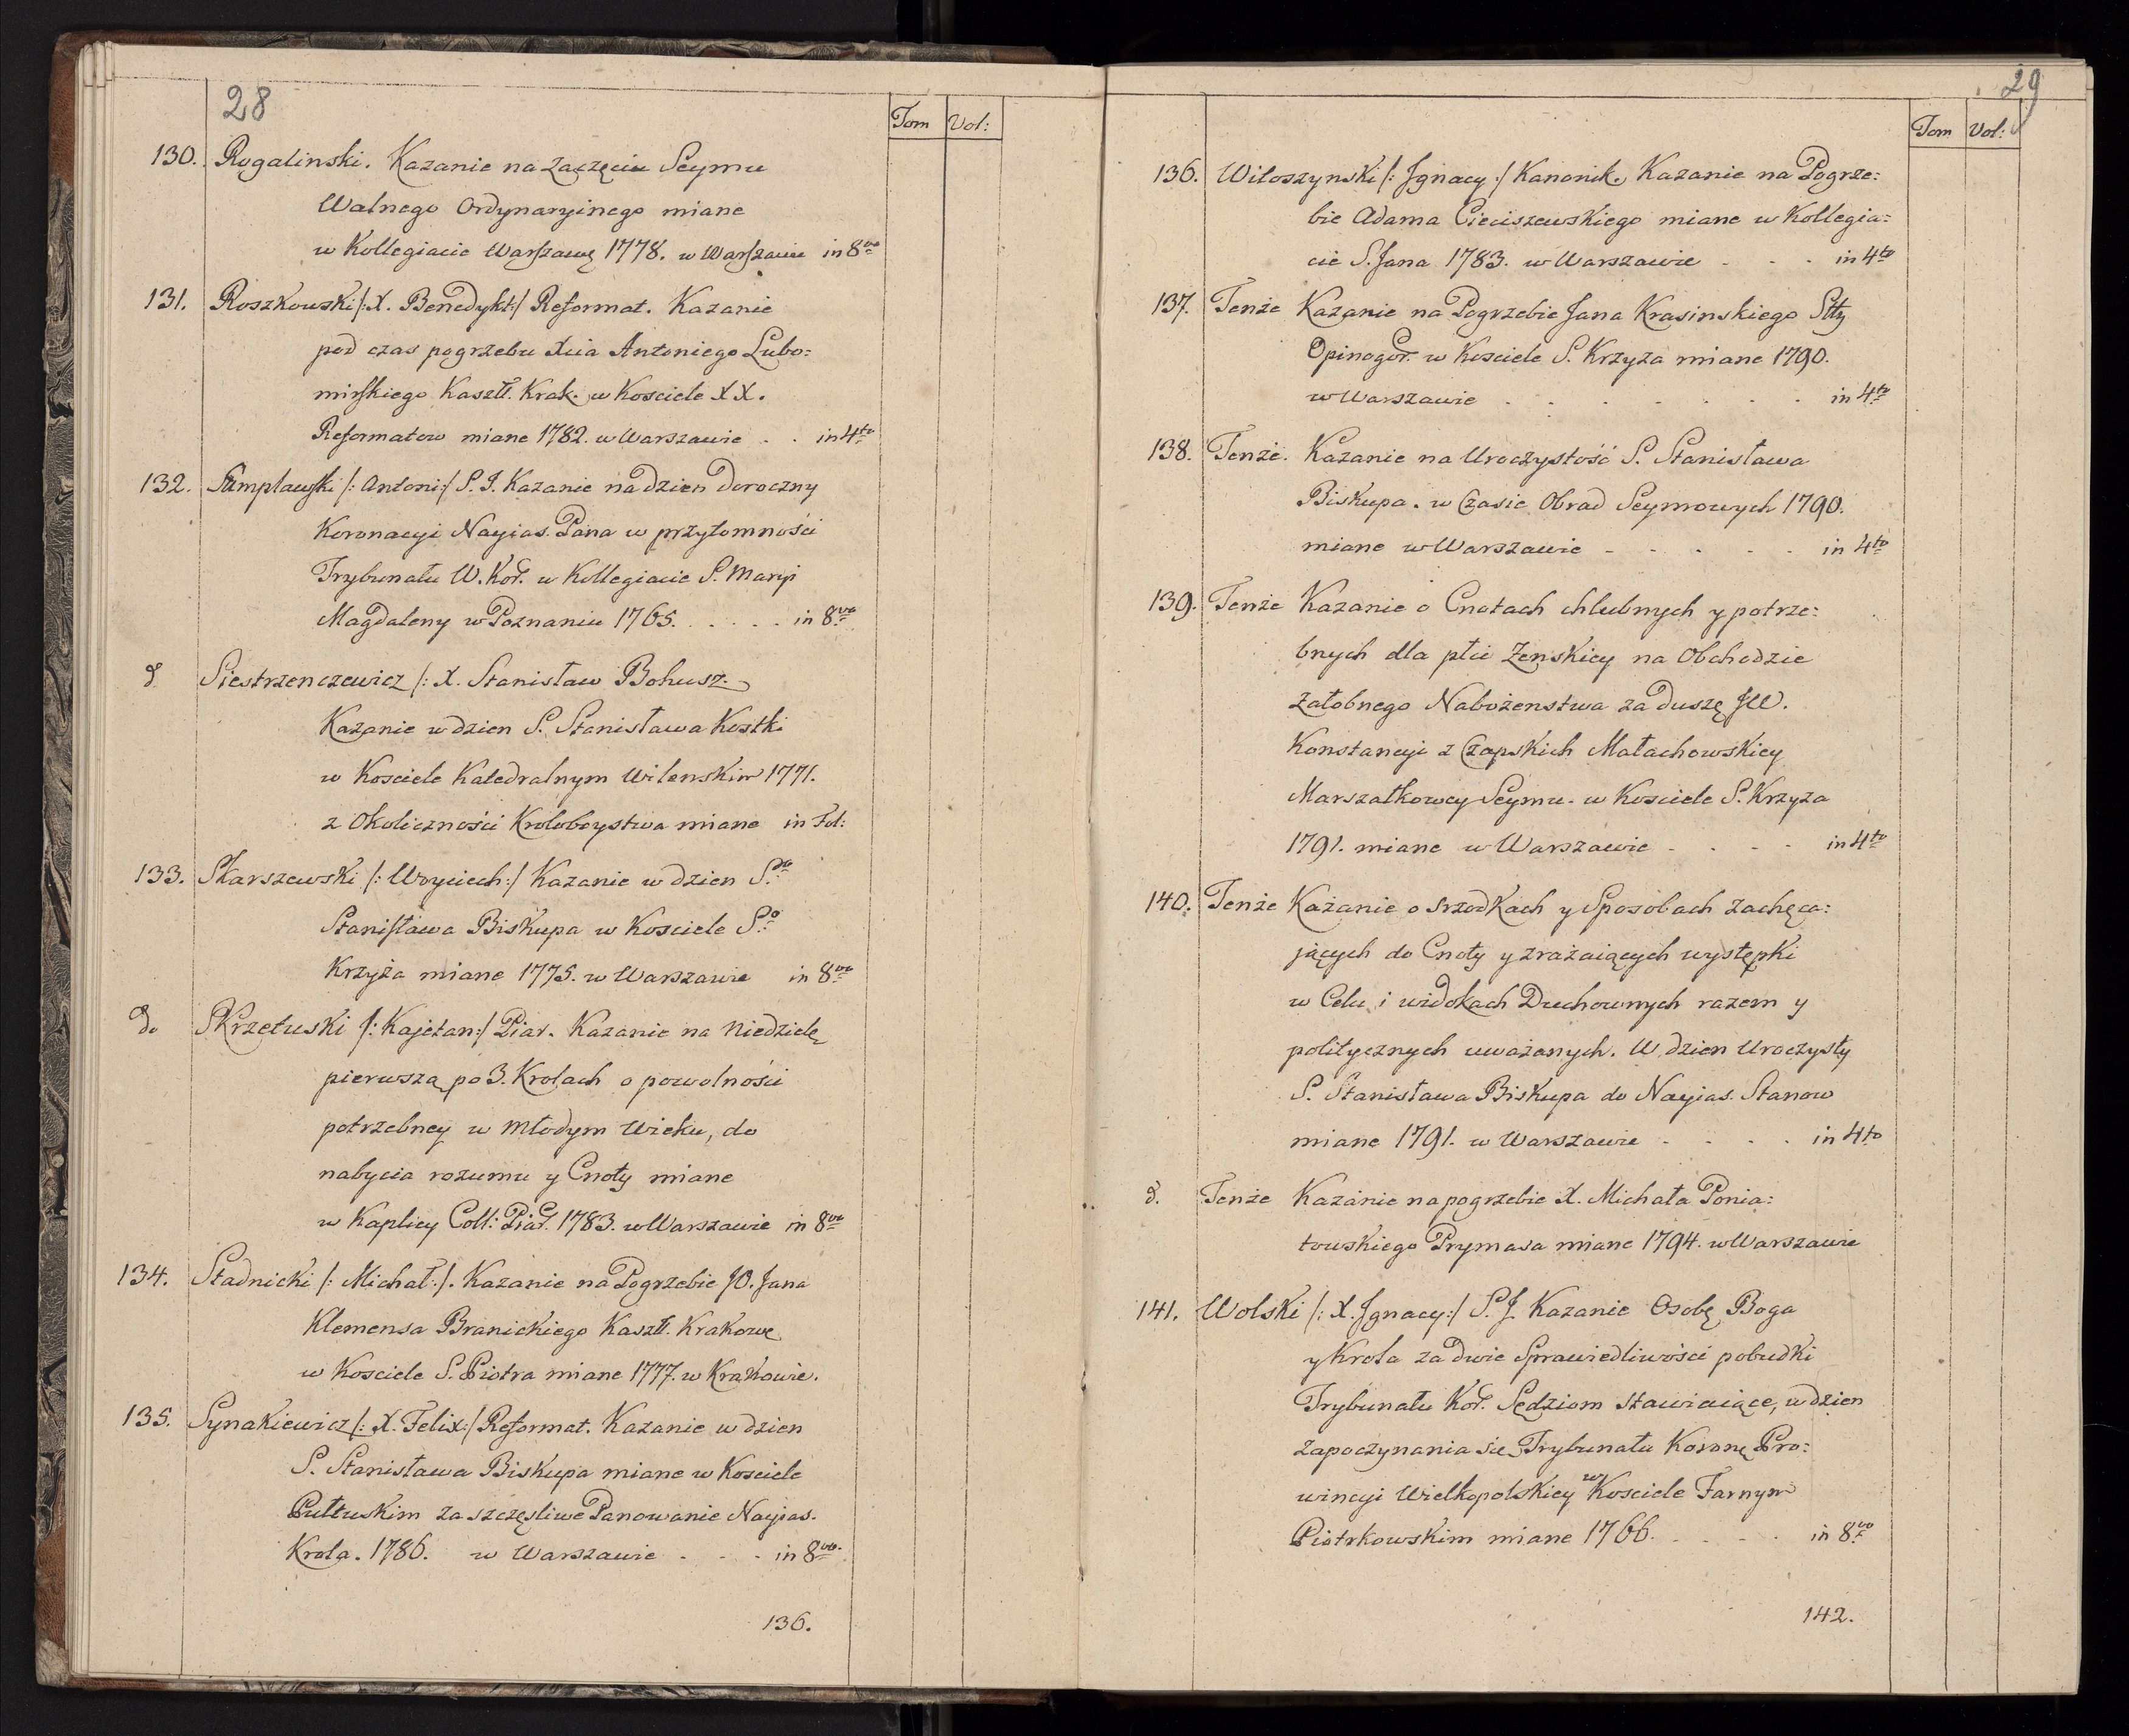 28
Tom Vol:
130. Rogalinski. Kazanie na Zaczęciu Seymu
Walnego Ordynaryinego miane
w Kollegiacie Warszawę 1778. w Warszawie in 8vo
131. Roszkowski /: X. Benedykt:/ Reformat. Kazanie
pod czas pogrzebu Xcia Antoniego Lubo:
mirskiego Kasztt. Krak. w Kosciele XX.
Reformatow miane 1782. w Warszawie . . in 4to
132. Samplawski /: Antoni:/ S. J. Kazanie na dzien doroczny
Koronacyi Nayias. Pana w przytomności
Trybunału W. Kor. w Kollegiacie S. Maryi
Magdaleny w Poznaniu 1765. . . . . . in 8vo
d Siestrzenczewicz /: X. Stanisław Bohusz.
Kazanie w dzien S. Stanisława Kostki
w Kosciele Katedralnym Wilenskim 1771.
z Okoliczności Kroloboystwa miane in Fol:
133. Skarszewski /: Woyciech:/ Kazanie w dzien S.go
Stanisława Biskupa w Kosciele S.o
Krzyża miane 1775. w Warszawie in 8vo
do Skrzetuski /: Kajetan:/ Piar. Kazanie na Niedzielę
pierwszą po 3. Krolach o powolności
potrzebney w Młodym Wieku, do
nabycia rozumu y Cnoty miane
w Kaplicy Coll: Piar. 1783. w Warszawie in 8vo
134. Stadnicki /: Michał:/. Kazanie na Pogrzebie JO. Jana
Klemensa Branickiego Kasztt. Krakowę
w Kosciele S. Piotra miane 1777. w Krakowie.
135. Synakiewicz /: X. Felix:/ Reformat. Kazanie w dzien
S. Stanisława Biskupa miane w Kosciele
Pułtuskim za szczęsliwe Panowanie Nayias.
Krola. 1786. w Warszawie . . . in 8vo.
136.
29
Tom Vol:
136. Witoszynski /: Jgnacy:/ Kanonik. Kazanie na Pogrze:
bie Adama Cieciszewskiego miane w Kollegia:
cie S. Jana 1783. w Warszawie . . . in 4to
137. Tenże Kazanie na Pogrzebie Jana Krasinskiego Stty
Opinogor. w Kosciele S. Krzyża miane 1790.
w Warszawie . . . . . . . in 4to
138. Tenże. Kazanie na Uroczystość S. Stanisława
Biskupa. w Czasie Obrad Seymowych 1790.
miane w Warszawie - - . . . in 4to
139. Tenże Kazanie o Cnotach chlubnych y potrze:
bnych dla płci Zenskiey na Obchodzie
załobnego Nabożenstwa za duszę JW.
Konstancyi z Czapskich Małachowskiey
Marszałkowey Seymu. w Kosciele S. Krzyża
1791. miane w Warszawie - . . . in 4to
140. Tenże Kazanie o srzodkach y Sposobach zachęca:
jących do Cnoty y zrażaiących występki
w Celu i widokach Duchownych razem y
politycznych uważanych. W dzien Uroczysty
S. Stanisława Biskupa do Nayias. Stanow
miane 1791. w Warszawie . . . . in 4to
d. Tenże Kazanie na pogrzebie X. Michała Ponia:
towskiego Prymasa miane 1794. w Warszawie
141. Wolski /: X. Jgnacy:/ S. J. Kazanie Osobę Boga
y Krola za dwie Sprawiedliwości pobudki
Trybunału Kor. Sędziom stawiaiące, w dzien
zapoczynania się Trybunału Koronę Pro:
wincyi Wielkopolskiey w Kosciele Farnym
Piotrkowskim miane 1766. . . . in 8vo
142.